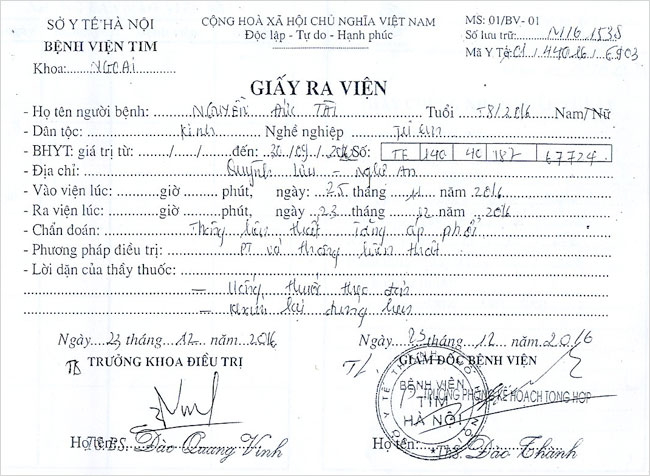 SỞ Y TẾ HÀ NỘI
BỆNH VIỆN TIM
Khoa: NGOẠI
CỘNG HOÀ XÃ HỘI CHỦ NGHĨA VIỆT NAM
Độc lập - Tự do - Hạnh phúc
MS: 01/BV- 01
Số lưu trữ: N16 1538
Mã Y Tế: 01/440/16/6903
GIẤY RA VIỆN
- Họ tên người bệnh: NGUYỄN ĐỨC TÀI Tuổi T8/2016 Nam/Nữ
- Dân tộc: Kinh Nghề nghiệp
- BHYT: giá trị từ: / / đến: 30/09/ Số: TE 140 40 187 67724
- Địa chỉ: Quỳnh Lưu - Nghệ An
- Vào viện lúc: giờ phút, ngày: 25 tháng 11 năm 2016
- Ra viện lúc: giờ phút, ngày 23 tháng 12 năm 2016
- Chẩn đoán: Thông liên thất tăng áp phổi
- Phương pháp điều trị: PT vá thông liên thất
- Lời dặn của thầy thuốc:
- Uống thuốc theo đơn
- Khám lại đúng hẹn
Ngày 23 tháng 12 năm 2016
TRƯỞNG KHOA ĐIỀU TRỊ
Họ tên: BS. Đào Quang Vinh
Ngày 23 tháng 12 năm 2016
TL. GIÁM ĐỐC BỆNH VIỆN
TRƯỞNG PHÒNG KẾ HOẠCH TỔNG HỢP
BỆNH VIỆN
TIM
HÀ NỘI
Họ tên: ThS. Đào Thành